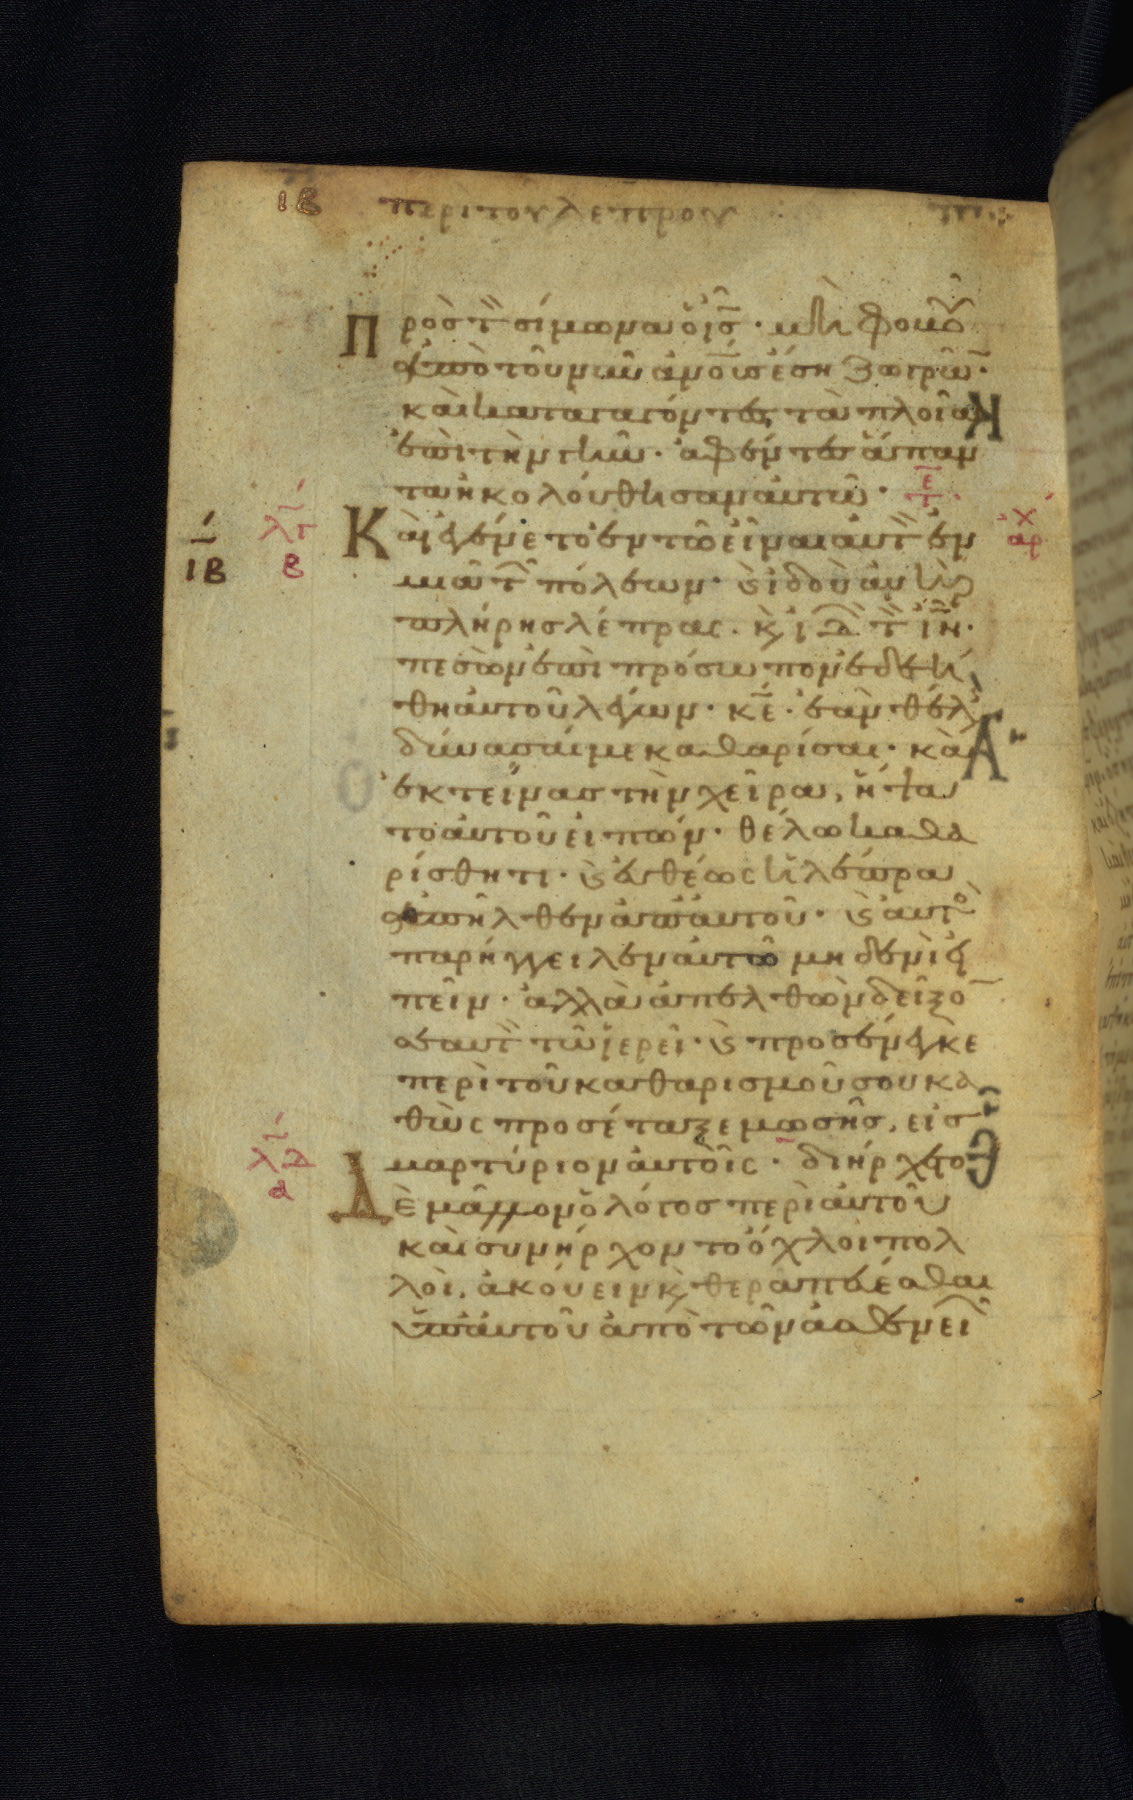 ιβ περὶ τοῦ λεπροῦ
Πρὸς τ σίμωνα ὁ ις̅ · μὴ φοβοῦ
ἀπὸ τοῦ νῦν ἀνο̅υς ἔση ζωγρῶν ·
καὶ καταγαγόντες τὰ πλοῖα
ἐπὶ τὴν γῆν · ἀφέντες ἅπαν
τα ἠκολούθησαν αὐτῶ · τε
Καὶ ἐγένετο ἐν τῶ εἶναι αὐτ ἐν
μιᾶ τ πόλεων · ϗ ἰδοὺ ἀνὴρ
πλήρης λέπρας · ϗ ἰδ τ ιν̅ ·
πεσὼν ἐπὶ πρόσωπον ἐδεή
θη αὐτοῦ λέγων · κε̅ · ἐὰν θέλης
δύνασαί με καθαρίσαι · καὶ
ἐκτείνας τὴν χεῖρα, ἥψα
το αὐτοῦ εἰπών · θέλω καθα
ρίσθητι · ϗ εὐθέως ἡ λέπρα
ἀπῆλθεν ἀπ' αὐτοῦ · ϗ αὐτὸ
παρήγγειλεν αὐτῶ μηδενὶ εἰ
πεῖν · ἀλλὰ ἀπελθὼν δεῖξο
σεαυτ τῶ ἱερεῖ · ϗ προσένεγκε
περὶ τοῦ καθαρισμοῦ σου κα
θὼς προσέταξε μωσῆς, εἰς
μαρτύριον αὐτοῖς · διήρχετο
Δὲ μᾶλλον ὁ λόγος περὶ αὐτοῦ
καὶ συνήρχοντο ὄχλοι πολ
λοὶ, ἀκούειν ϗ θεραπεύεσθαι
ὑπ' αὐτοῦ ἀπὸ τῶν ἀσθενει
ιβ
β
α